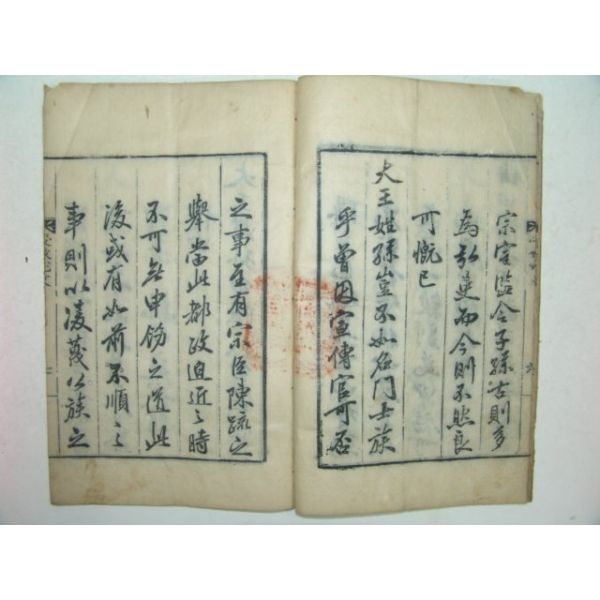 宗室監令子孫古則多
爲引是而今則不然良
可慨已
大王姓孫豈不如名門士族
乎曾因宣傳官可否
之事至有宗臣陳疏之
擧當此都政迫近之時
不可無申飭之道此
後或有如前不順之
事則以凌蔑公族之